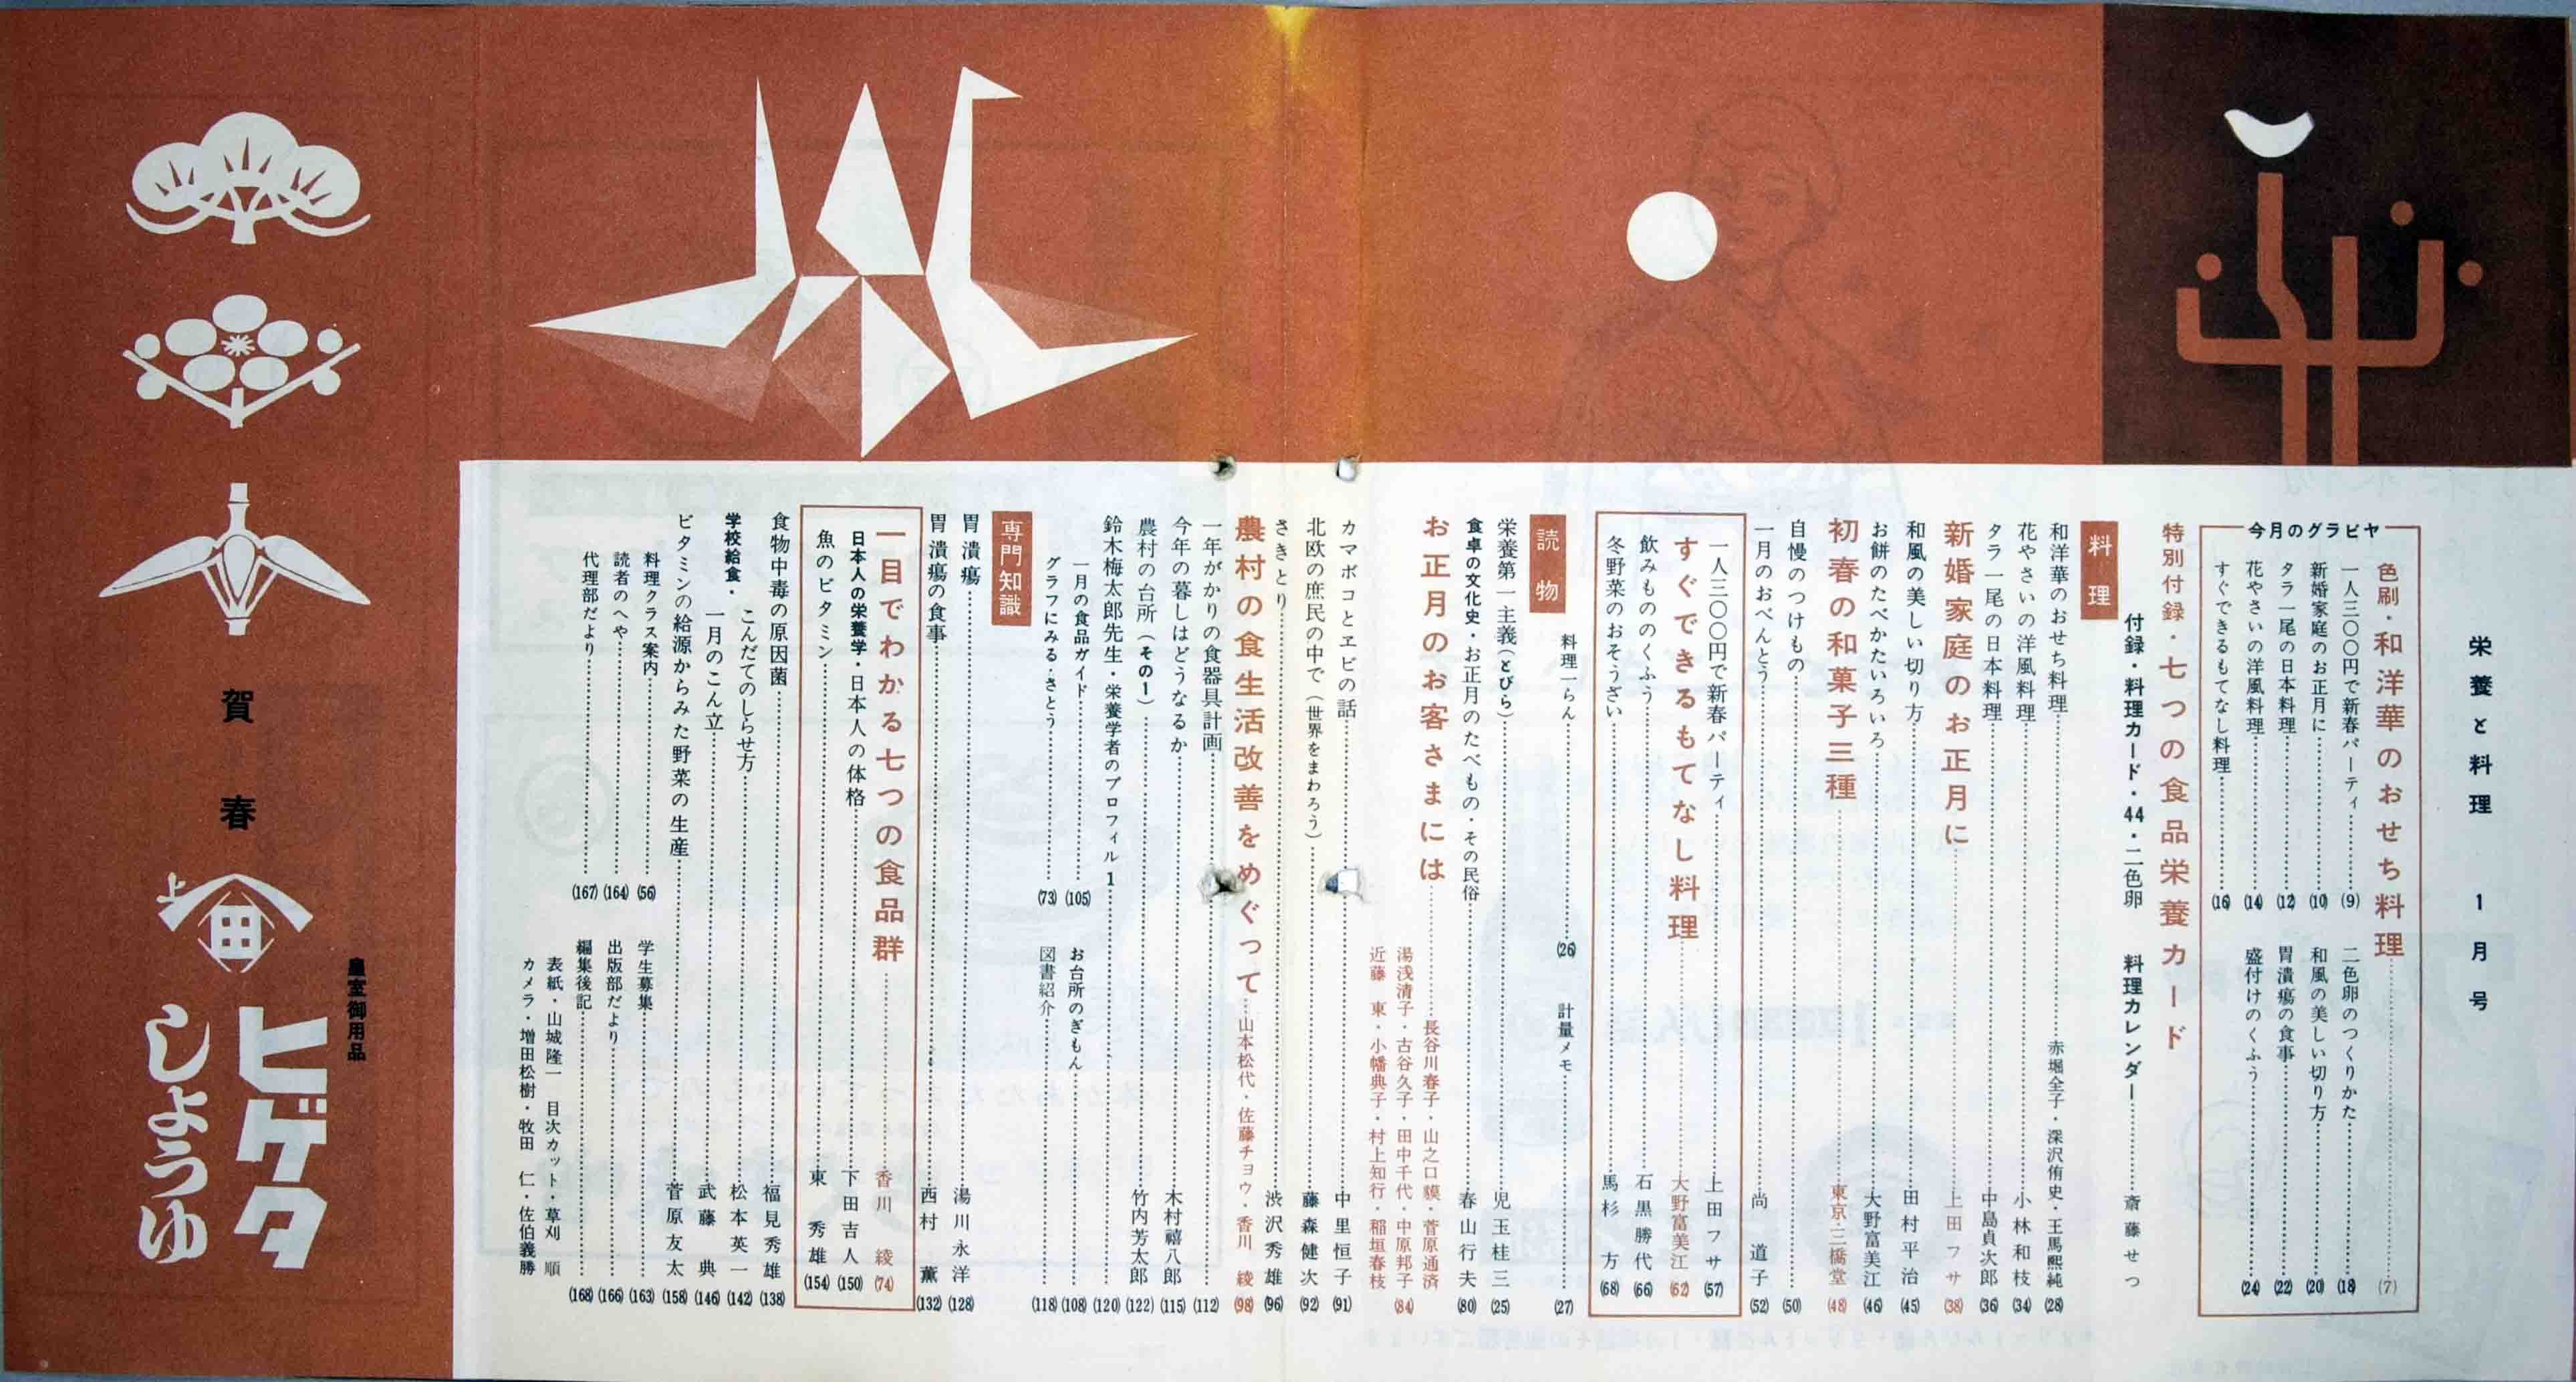 栄養と料理　1月号
今月のグラビヤ
色刷・和洋華のおせち料理 (7)
一人三〇〇円で新春パーティ (9)
二色卵のつくりかた (18)
新婚家庭のお正月に (10)
和風の美しい切り方 (20)
タラ一尾の日本料理 (12)
胃潰瘍の食事 (22)
花やさいの洋風料理 (14)
盛付けのくふう (24)
すぐできるもてなし料理 (16)
特別付録・七つの食品栄養カード
付録・料理カード・44・二色卵　料理カレンダー 斎藤せつ
料理
和洋華のおせち料理 赤堀全子・深沢侑史・王馬熙純 (28)
花やさいの洋風料理 小林和枝 (34)
タラ一尾の日本料理 中島貞次郎 (36)
新婚家庭のお正月に 上田フサ (38)
和風の美しい切り方 田村平治 (45)
お餅のたべかたいろいろ 大野富美江 (46)
初春の和菓子三種 東京・三橋堂 (48)
自慢のつけもの (50)
一月のおべんとう 尚道子 (52)
一人三〇〇円で新春パーティ 上田フサ (57)
すぐできるもてなし料理 大野富美江 (62)
飲みもののくふう 石黒勝代 (66)
冬野菜のおそうざい 馬杉方 (68)
料理一らん (26)
計量メモ (27)
読物
栄養第一主義(とびら) 児玉桂三 (25)
食卓の文化史・お正月のたべもの・その民俗 春山行夫 (80)
お正月のお客さまには 長谷川春子・山之口貘・菅原通済
湯浅清子・古谷久子・田中千代・中原邦子 (84)
近藤　東・小幡典子・村上知行・稲垣春枝
カマボコとエビの話 中里恒子 (91)
北欧の庶民の中で(世界をまわろう) 藤森健次 (92)
さきとり 渋沢秀雄 (96)
農村の食生活改善をめぐって 山本松代・佐藤チョウ・香川　綾 (98)
一年がかりの食器具計画 (112)
今年の暮しはどうなるか 木村禧八郎 (115)
農村の台所(その1) 竹内芳太郎 (122)
鈴木梅太郎先生・栄養学者のプロフィル1 (120)
一月の食品ガイド (105)
お台所のぎもん (108)
グラフにみる・さとう (73)
図書紹介 (118)
専門知識
胃潰瘍 湯川永洋 (128)
胃潰瘍の食事 西村　薫 (132)
一目でわかる七つの食品群 香川　綾 (74)
日本人の栄養学・日本人の体格 下田吉人 (150)
魚のビタミン 東　秀雄 (154)
食物中毒の原因菌 福見秀雄 (138)
学校給食・こんだてのしらせ方 松本英一 (142)
一月のこん立 武藤　典 (146)
ビタミンの給源からみた野菜の生産 菅原友太 (158)
料理クラス案内 (56)
学生募集 (163)
読者のへや (164)
出版部だより (166)
代理部だより (167)
編集後記 (168)
表紙・山城隆一　目次カット・草刈　順
カメラ・増田松樹・牧田　仁・佐伯義勝
賀春
上
田
皇室御用品
ヒゲタ
しょうゆ